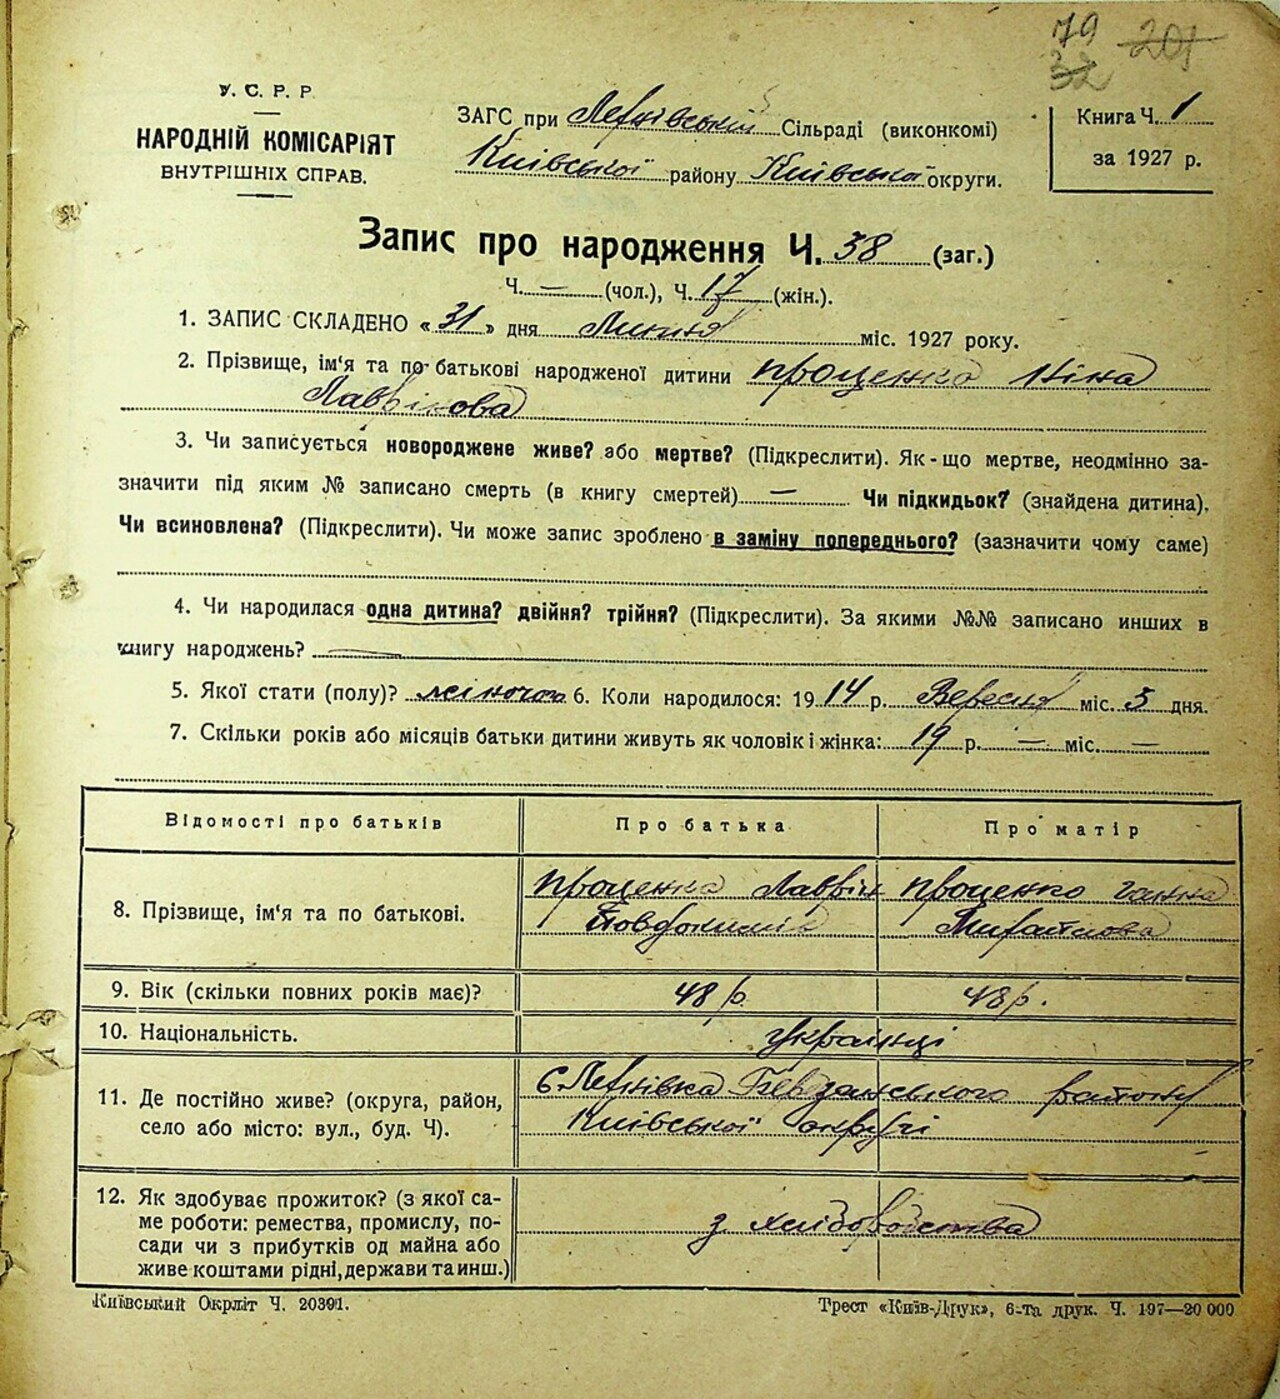 79 201
32
У. С. Р. Р.
НАРОДНІЙ КОМІСАРІЯТ
ВНУТРІШНІХ СПРАВ.
ЗАГС при Сільраді (виконкомі)
Київської району Київської округи.
Книга Ч. 1
за 1927 р.
Запис про народження Ч. 38 (заг.)
Ч. — (чол.), Ч. 17 (жін.).
1. ЗАПИС СКЛАДЕНО « 31 » дня Липня міс. 1927 року.
2. Прізвище, ім'я та по-батькові народженої дитини Проценко Ніна
Лаврінова
3. Чи записується новороджене живе? або мертве? (Підкреслити). Як-що мертве, неодмінно за-
значити під яким № записано смерть (в книгу смертей) — Чи підкидьок? (знайдена дитина).
Чи всиновлена? (Підкреслити). Чи може запис зроблено в заміну попереднього? (зазначити чому саме)
4. Чи народилася одна дитина? двійня? трійня? (Підкреслити). За якими №№ записано инших в
книгу народжень? —
5. Якої стати (полу)? жіночої 6. Коли народилося: 1914 р. Вересня міс. 3 дня.
7. Скільки років або місяців батьки дитини живуть як чоловік і жінка: 19 р. — міс. —
Відомості про батьків Про батька Про матір
8. Прізвище, ім'я та по батькові. Проценко Лаврін Проценко Ганна
9. Вік (скільки повних років має)? 48 р. 48 р.
10. Національність. українці
11. Де постійно живе? (округа, район, району
село або місто: вул., буд. Ч). Київської округи
12. Як здобуває прожиток? (з якої са-
ме роботи: ремества, промислу, по- з хліборобства
сади чи з прибутків од майна або
живе коштами рідні, держави та инш.)
Київський Окрліт Ч. 20391.
Трест «Київ-Друк», 6-та друк. Ч. 197—20 000